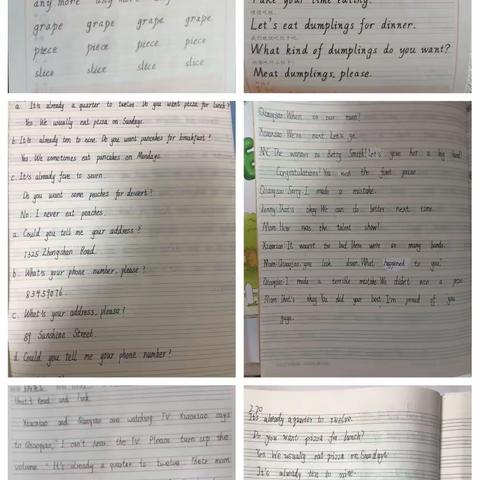 any more any more
grape grape grape grape
piece piece piece piece
slice slice slice slice
Take your time eating.
Let's eat dumplings for dinner.
What kind of dumplings do you want?
Meat dumplings, please.
a. It's already a quarter to twelve. Do you want pizza for lunch?
Yes. We usually eat pizza on Sundays.
b. It's already ten to nine. Do you want pancakes for breakfast?
Yes. We sometimes eat pancakes on Mondays.
c. It's already five to seven.
Do you want some peaches for dessert?
No. I never eat peaches.
a. Could you tell me your address?
1325 Zhongshan Road.
b. What's your phone number, please?
83459076.
c. What's your address, please?
89 Sunshine Street.
d. Could you tell me your phone number?
Qiaoqiao: When is our turn?
Xiaoxiao: We're next. Let's go.
MC: The winner is Betty Smith! Let's give her a big hand!
Congratulations! You the first prize.
Qiaoqiao: Sorry. I made a mistake.
Jenny: That's okay. We can do better next time.
Mom: How was the talent show?
Xiaoxiao: It wasn't bad. But there were so many bands.
Mom: Qiaoqiao, you look down. What happened to you?
Qiaoqiao: I made a terrible mistake. We didn't win a prize.
Mom: That's okay. You did your best. I'm proud of you
guys.
Unit 7 Read and
Xiaoxiao and Qiaoqiao are watching TV. Xiaoxiao says
to Qiaoqiao, "I can't hear the TV. Please turn up the
volume." It's already a quarter to twelve. Their mom
It's already a quarter to twelve.
Do you want pizza for lunch?
Yes. We usually eat pizza on Sundays.
It's already ten to nine.